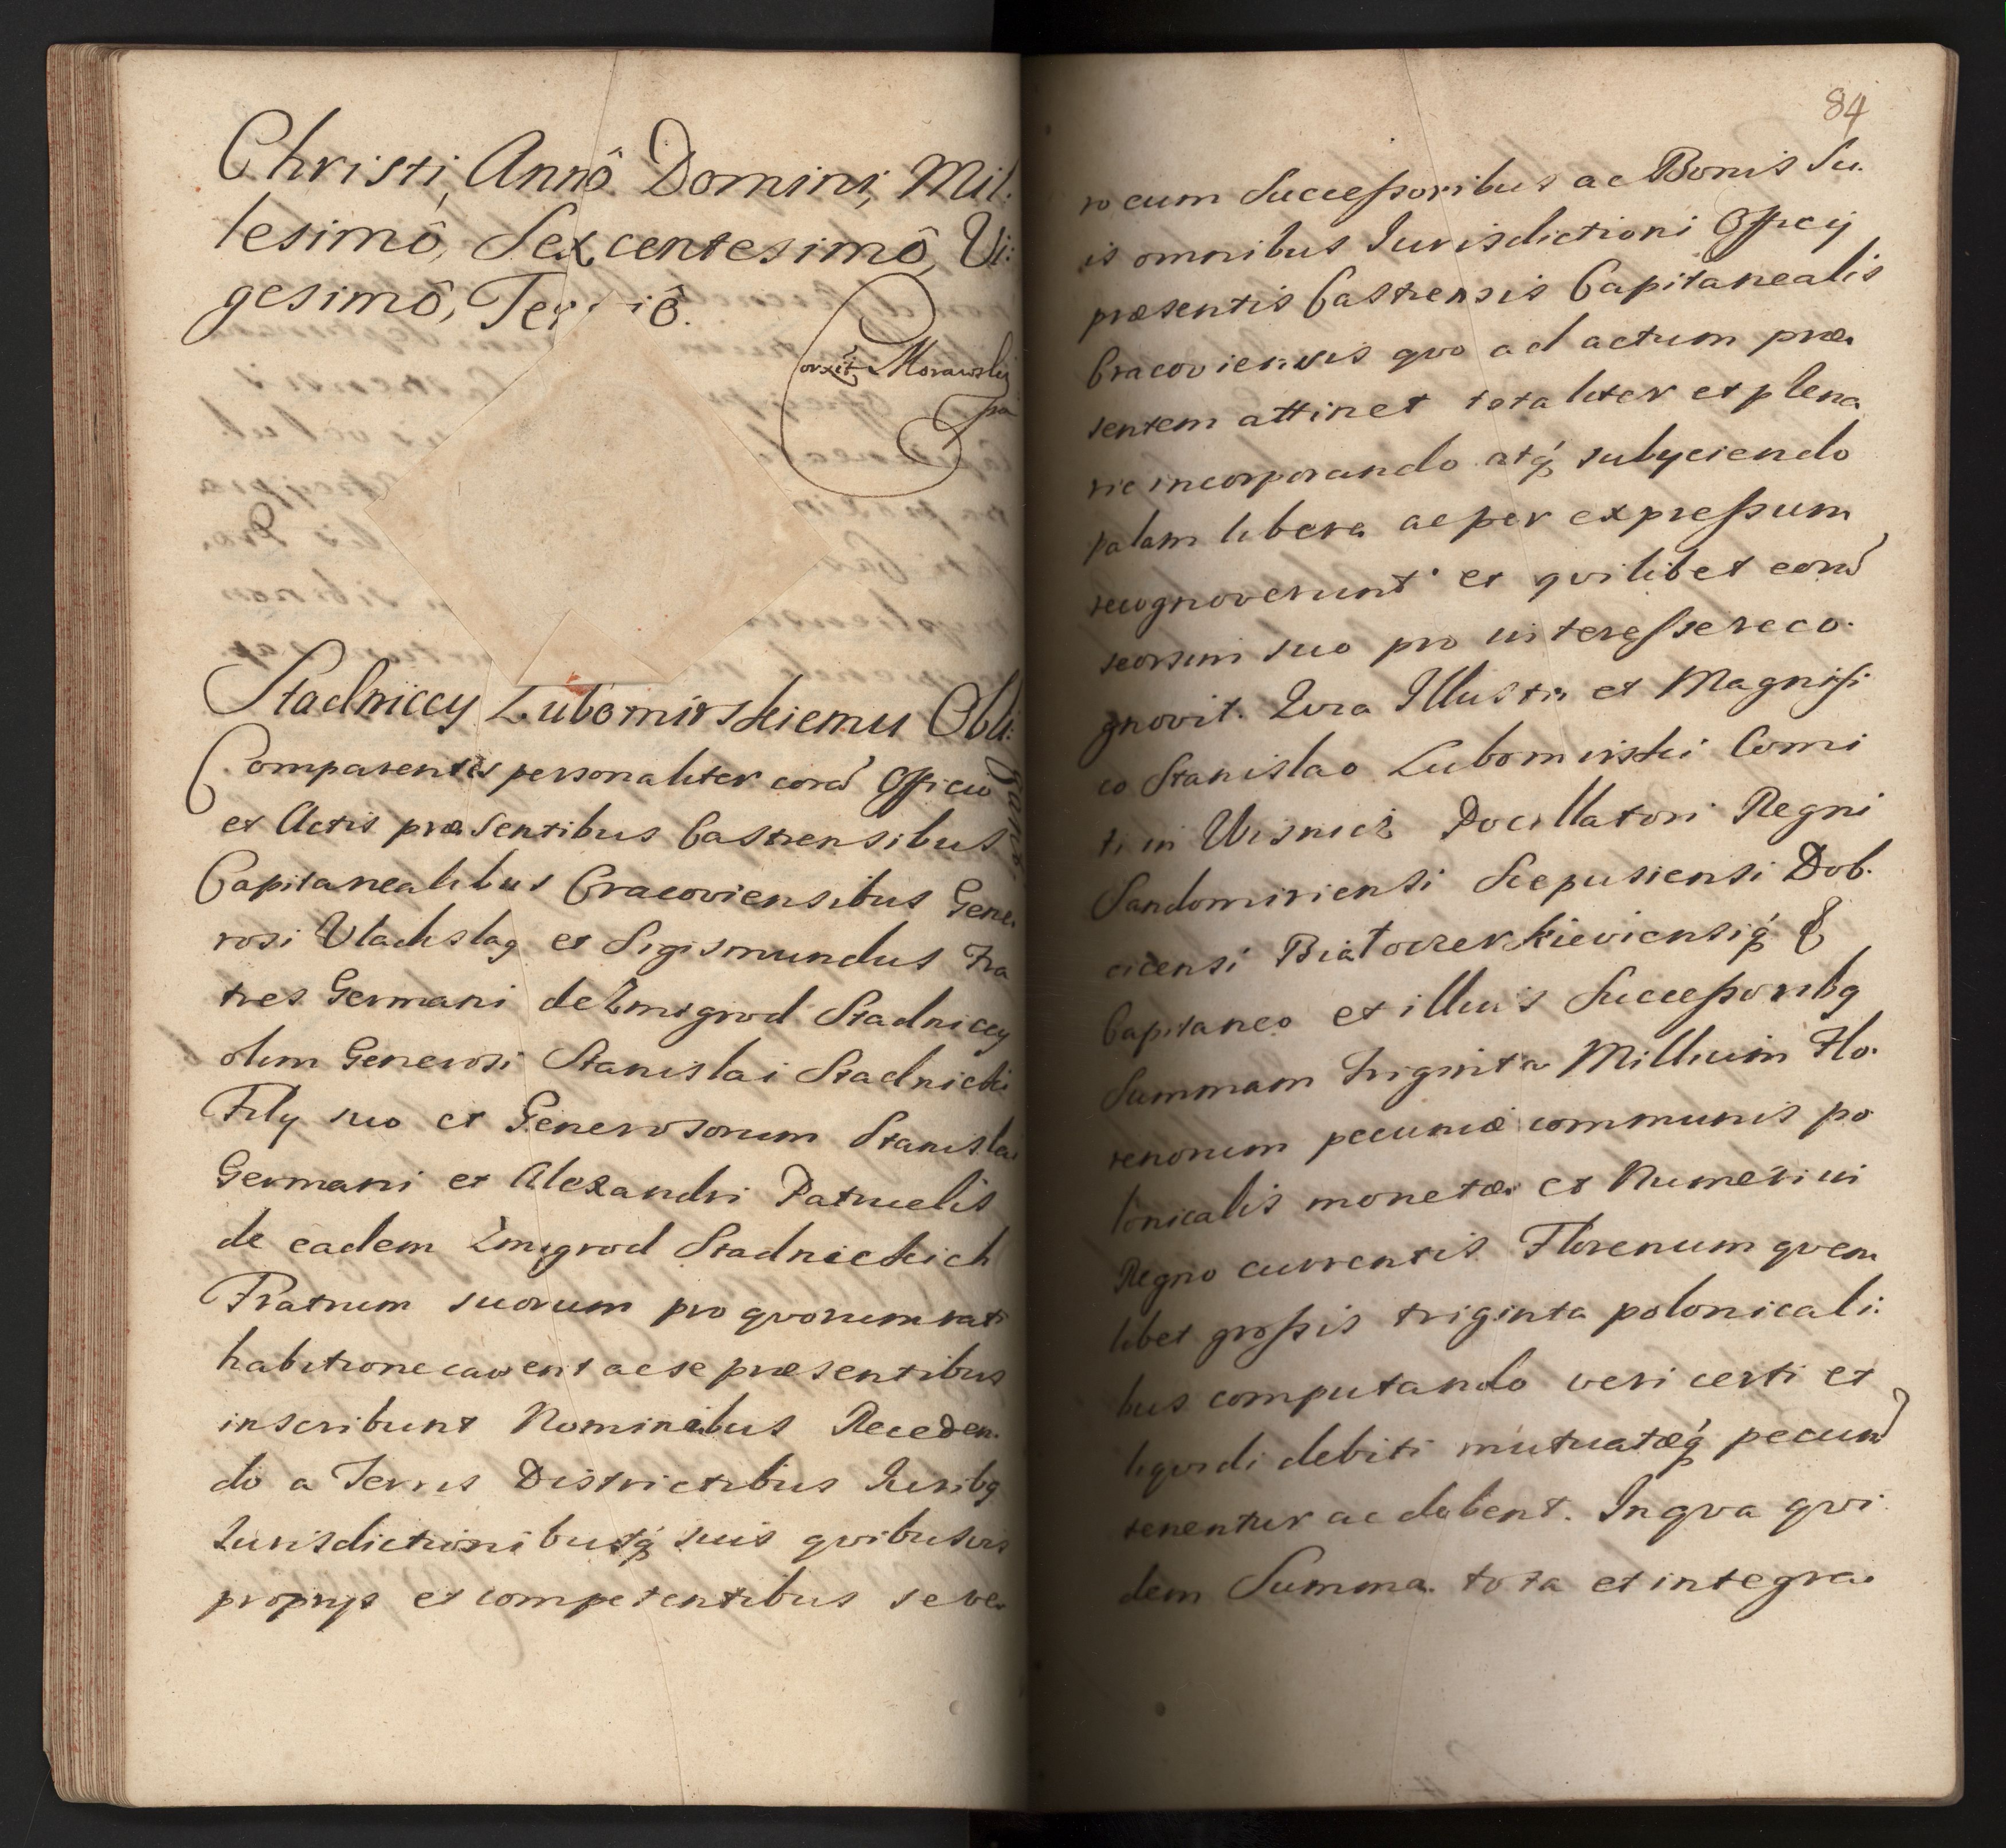 Christi, Annô Domini, Mil:
lesimô, Sexcentesimô, Vi:
gesimô, Ter iô.
Morawsky
Stadniccy Lubomirskiemu Obli:
Comparentes personaliter corã Officio
et Actis præsentibus Castrensibus
Capitanealibus Cracoviensibus Gene,
rosi Vladislaq et Sigismundus Fra
tres Germani de Zmigrod Stadniccy
olim Generosi Stanislai Stadnicki
Filij suo et Generosorum Stanislai
Germani et Alexandri Patruelis
de eadem Zmigrod Stadnickich
Fratrum suorum pro qvorum rati
habitione cavent ac se præsentibus
inscribunt Nominibus Receden.
do a Terris Districtibus Iuribq
Iurisdictionibusq́ suis qvibusvis
proprijs et competentibus se ve,
84
ro cum Successoribus ac Bonis Su.
is omnibus Iurisdictioni Officij
præsentis Castrensis Capitanealis
Cracoviensis qvo ad actum præ,
sentem attinet totaliter et plena
rie incorporando atq́ subijciendo
palam libera ac per expressum
recognoverunt et qvilibet eorũ
seorsim suo pro interesse reco.
gnovit. Qvia Illustri et Magnifi
co Stanislao Lubomirski Comi
ti in Wisnicz Pocillatori Regni
Sandomiriensi Scepusiensi Dob.
cicensi Białoczerkieviensiq́ &
Capitaneo et illius Successoribq
Summam triginta Millium Flo.
renorum pecuniæ communis po
lonicalis monetæ et Numeri in
Regno currentis Florenum qvem
libet grossis triginta polonicali:
bus computando veri certi et
liqvidi debiti mutuatæq́ pecuniæ
tenentur ac debent. In qva qvi
dem Summa tota et integra